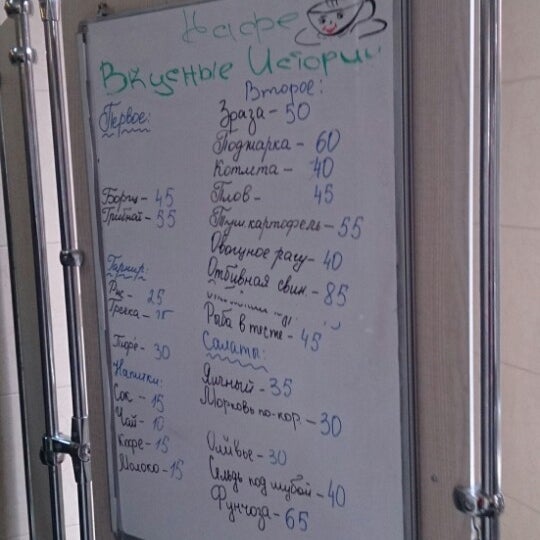 Кафе
Вкусные Истории
Первое:
Борщ - 45
Грибной - 55
Гарнир:
Рис - 25
Гречка -
Пюре - 30
Напитки:
Сок - 15
Чай - 10
Кофе - 15
Молоко - 15
Второе:
Зраза - 50
Поджарка - 60
Котлета - 40
Плов - 45
Туш. картофель - 55
Овощное рагу - 40
Отбивная свин. - 85
Рыба в тесте - 45
Салаты:
Яичный - 35
Морковь по-кор. - 30
Оливье - 30
Сельдь под шубой - 40
Фунчоза - 65